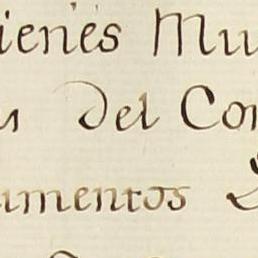 ienes Mu
del Con
umentos